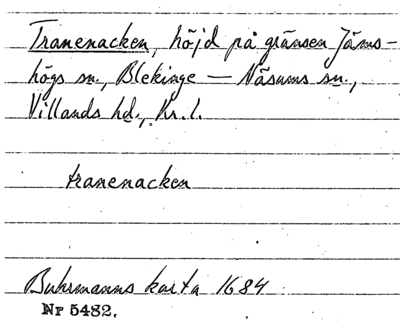 Tranenacken, höjd på gränsen Jäms-
högs sn., Blekinge — Näsums sn.,
Villands hd., Kr. l.
tranenacken
Buhrmanns karta 1684
Nr 5482.